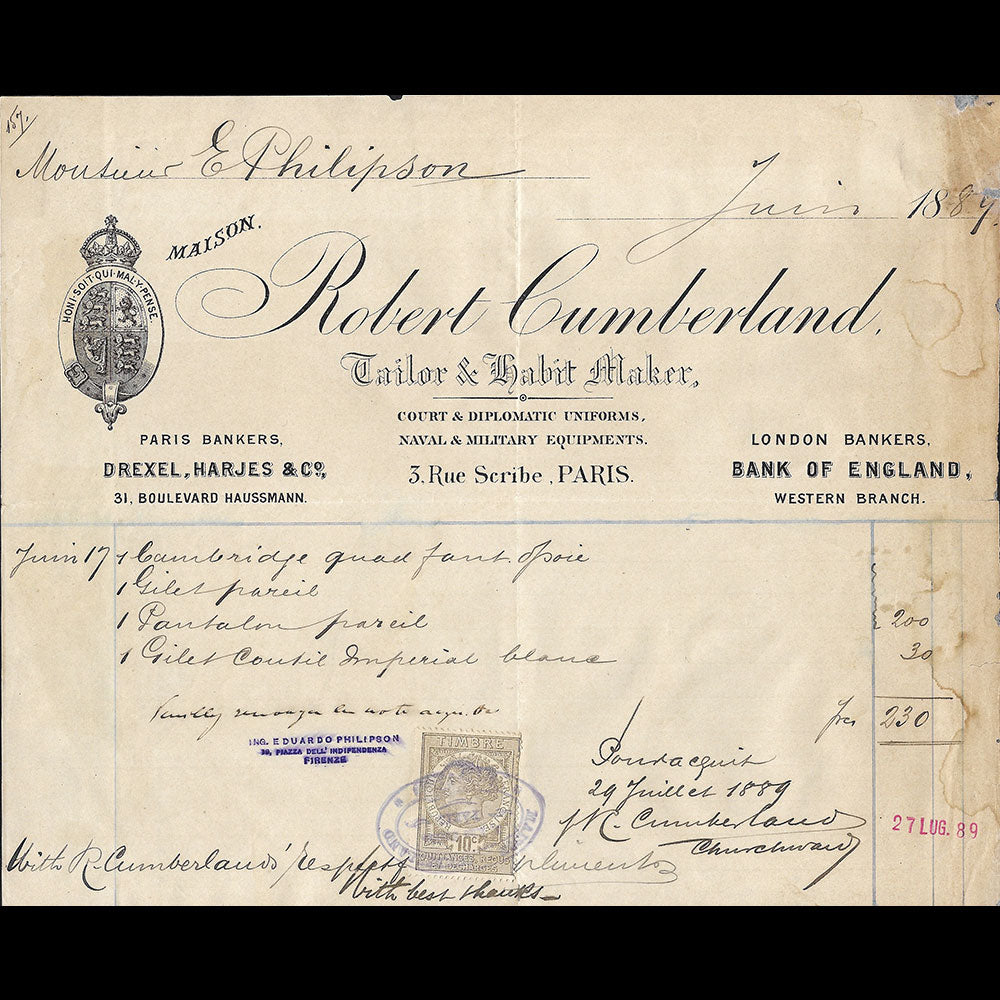 157.
Monsieur E Philipson
Juin 1889
MAISON.
HONI·SOIT·QUI·MAL·Y·PENSE
Robert Cumberland,
Tailor & Habit Maker,
COURT & DIPLOMATIC UNIFORMS,
NAVAL & MILITARY EQUIPMENTS.
3, Rue Scribe, PARIS.
PARIS BANKERS,
DREXEL, HARJES & Co,
31, BOULEVARD HAUSSMANN.
LONDON BANKERS,
BANK OF ENGLAND,
WESTERN BRANCH.
Juin 17 1 Cambridge quad fant. soie
1 Gilet pareil
1 Pantalon pareil 200
1 Gilet Coutil Imperial blanc 30
frcs 230
ING. EDUARDO PHILIPSON
PIAZZA DELL' INDIPENDENZA
FIRENZE
TIMBRE
10c
QUITTANCES, REÇUS
Pour acquit
29 Juillet 1889
R. Cumberland
Churchward
27 LUG. 89
With R. Cumberlands' respect
with best thanks